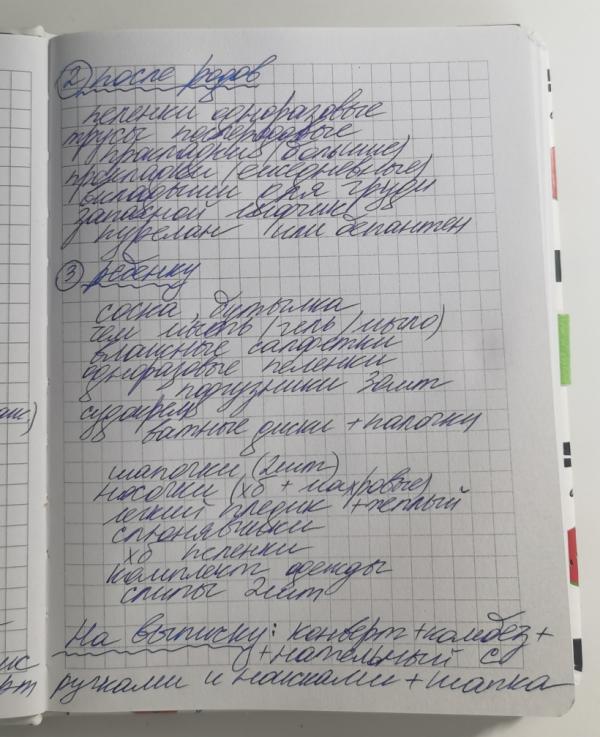 ② после родов
пеленки одноразовые
трусы послеродовые
прокладки (большие)
прокладки (ежедневные)
вкладыши для груди
запасной
пурелан или бепантен
③ ребенку
соска, бутылка
чем мыть (гель/мыло)
влажные салфетки
одноразовые пеленки
подгузники 30шт
судокрем
ватные диски + палочки
шапочки (2шт)
носочки (хб + махровые)
легкий пледик + теплый
слюнявчики
хб пеленки
комплект одежды
слипы 2шт
На выписку: конверт + комбез +
+ нательный с
ручками и носками + шапка